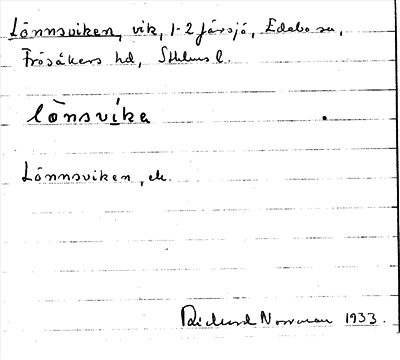 Lönnsviken, vik, 1-2 Järsjö, Edebo sn,
Frösåkers hd, Sthlms l.
lönsvika
Lönnsviken, ek.
Richard Norrman 1933.